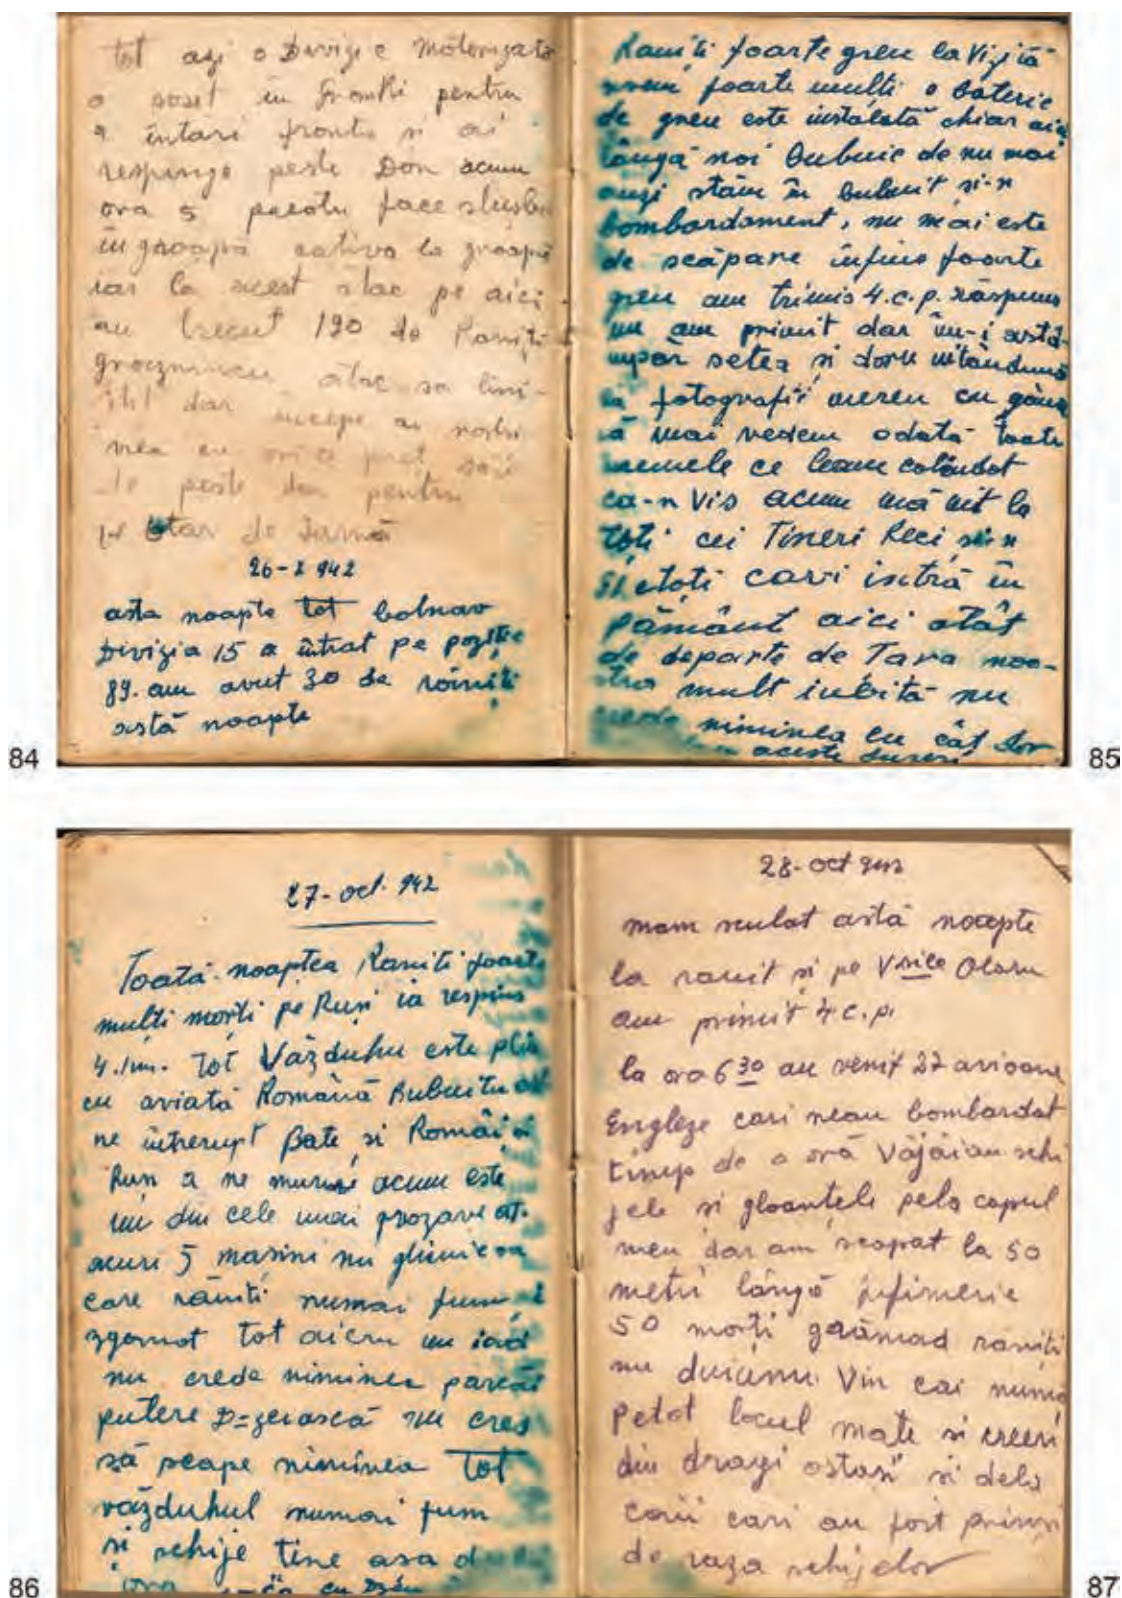 tot azi o Divizie Motorizata
a sosit in Frontu pentru
a intari frontu si ai
respinge peste Don acum
ora 5 patotu face slujba
in groapă cativa la groapă
iar la acest atac pe aici
au trecut 190 de Raniti
groaznicu atac sa lini-
stit dar incepe ai nostri
vrea cu orice pret
peste don pentru
de Iarnă
26-X 942
asta noapte tot bolnav
Divizia 15 a intrat pe poziție
89. am avut 30 de răniti
astă noapte
84
Raniti foarte greu la Vizită
avem foarte multi o Baterie
de greu este instalată chiar aici
lângă noi Bubuie de nu mai
auzi stăm în bubuit si-n
bombardament, nu mai este
de scăpare înfine foarte
greu am trimis 4.c.p. răspuns
nu am primit dar îm-i astâ-
mpăr setea si doru uitândumă
la fotografii mereu cu gându
să mai vedem odată toate
vremele ce leam colindat
ca-n Vis acum mă uit la
Toți cei Tineri Reci si-n
toti cari intră în
pământ aici atât
de departe de Tara noa-
stra mult iubită nu
crede niminea cu cât dor
aceste dureri
85
27-oct. 942
Toată noaptea Raniti foarte
mulți morți pe Ruși ia respins
4.km. Tot Văzduhu este plin
cu aviată Română Bubuitu
ne intrerupt Bate si Români si
Ruși acum este
un din cele mai grozave at-
acuri 5 masini nu
care răniti numai fum si
zgomot tot aicru un iad
nu crede niminea parcăi
putere D=zeiască nu cred
să scape niminea Tot
văzduhul numai fum
și schije tine asa
ora
86
28-oct 942
mam sculat astă noapte
la ranit si pe Vsile Olaru
am primit 4.c.p.
la ora 6 30 au venit 27 avioane
Engleze cari neau bombardat
timp de o oră Văjăiau schi
jele si gloanțele pela capul
meu dar am scapat la 50
metri lângă infirmerie
50 morți grămad raniti
nu Vin cai numa
petot locul mate si creeri
din dragi ostasi si dela
caii cari au fost prinsi
de raza schijelor
87